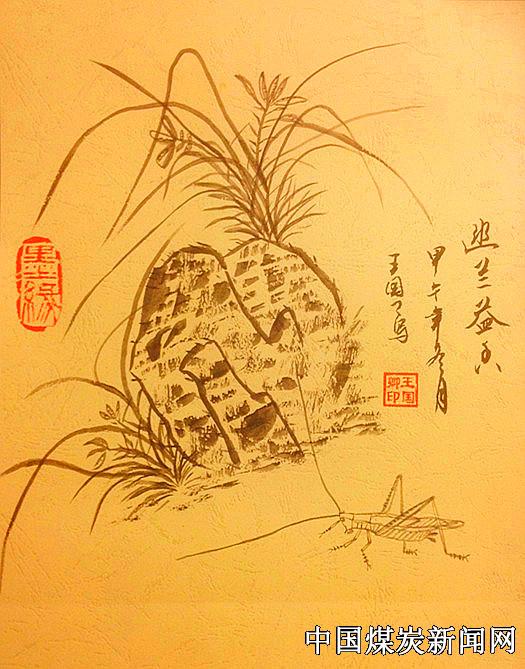 幽兰益香
甲午年冬月
王国卿写
王国卿印
墨缘
中国煤炭新闻网